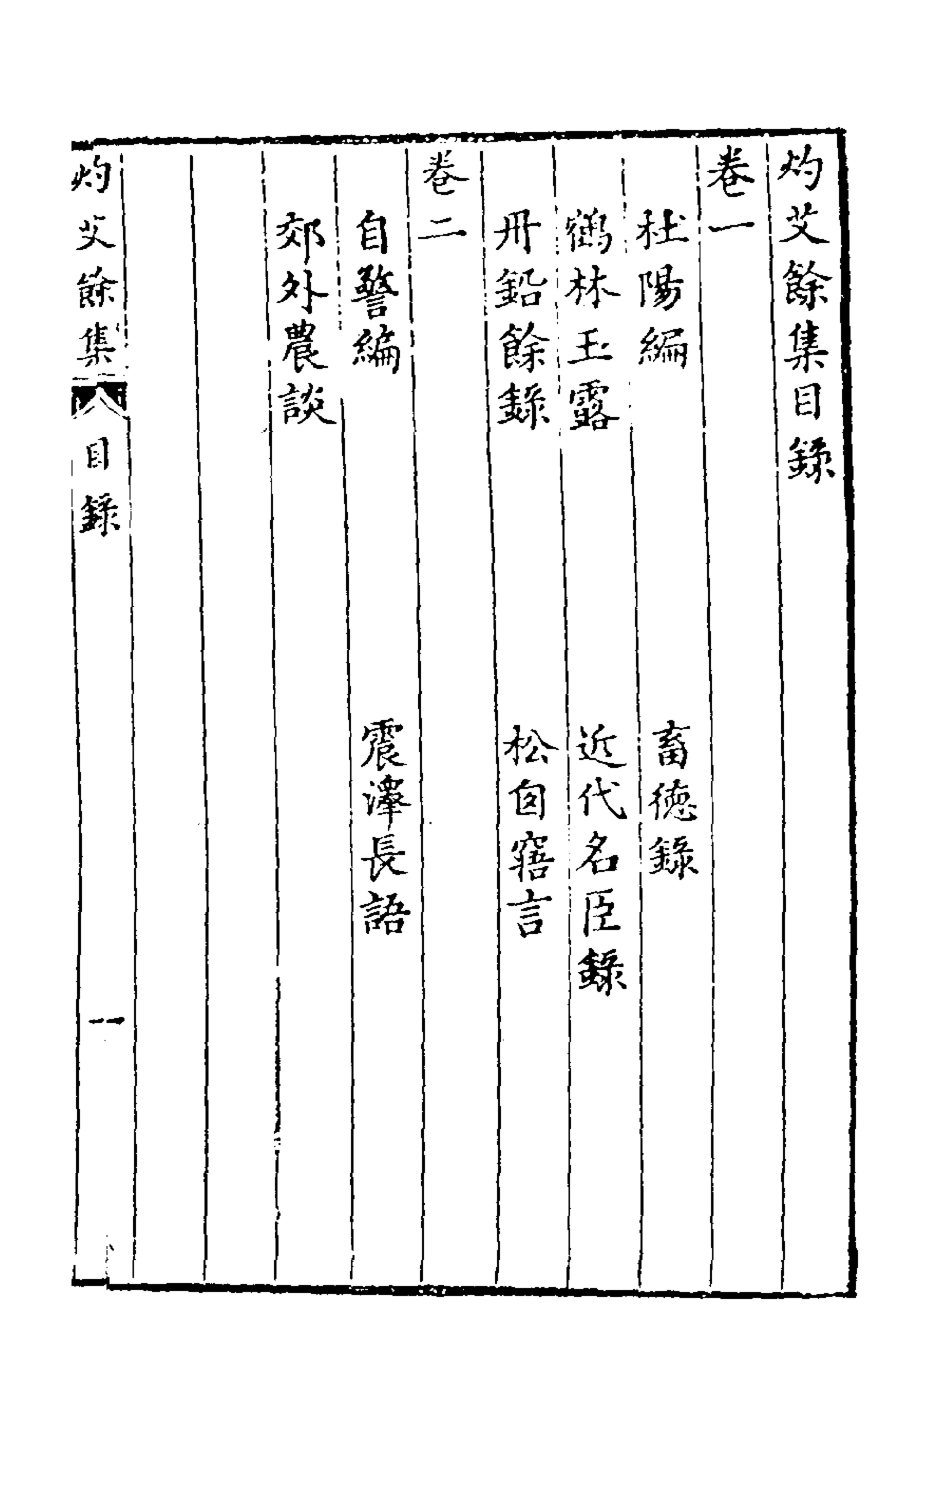 灼艾餘集目錄
卷一
杜陽編　畜德錄
鶴林玉露　近代名臣錄
丹鉛餘錄　松囱寤言
卷二
自警編　震澤長語
郊外農談
灼艾餘集　目錄　一